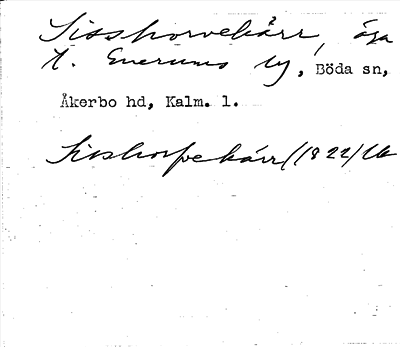 Sisshorvekärr, äga
t. Enerums by, Böda sn,
Åkerbo hd, Kalm. l.
Sisshorfvekärr (1822)